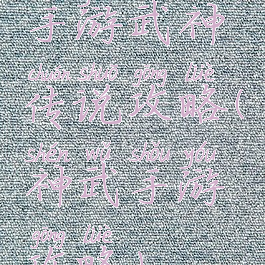 手游武神
chuán shuō gōng lüè
传说攻略(
shén wǔ shǒu yóu
神武手游
gōng lüè
攻略)